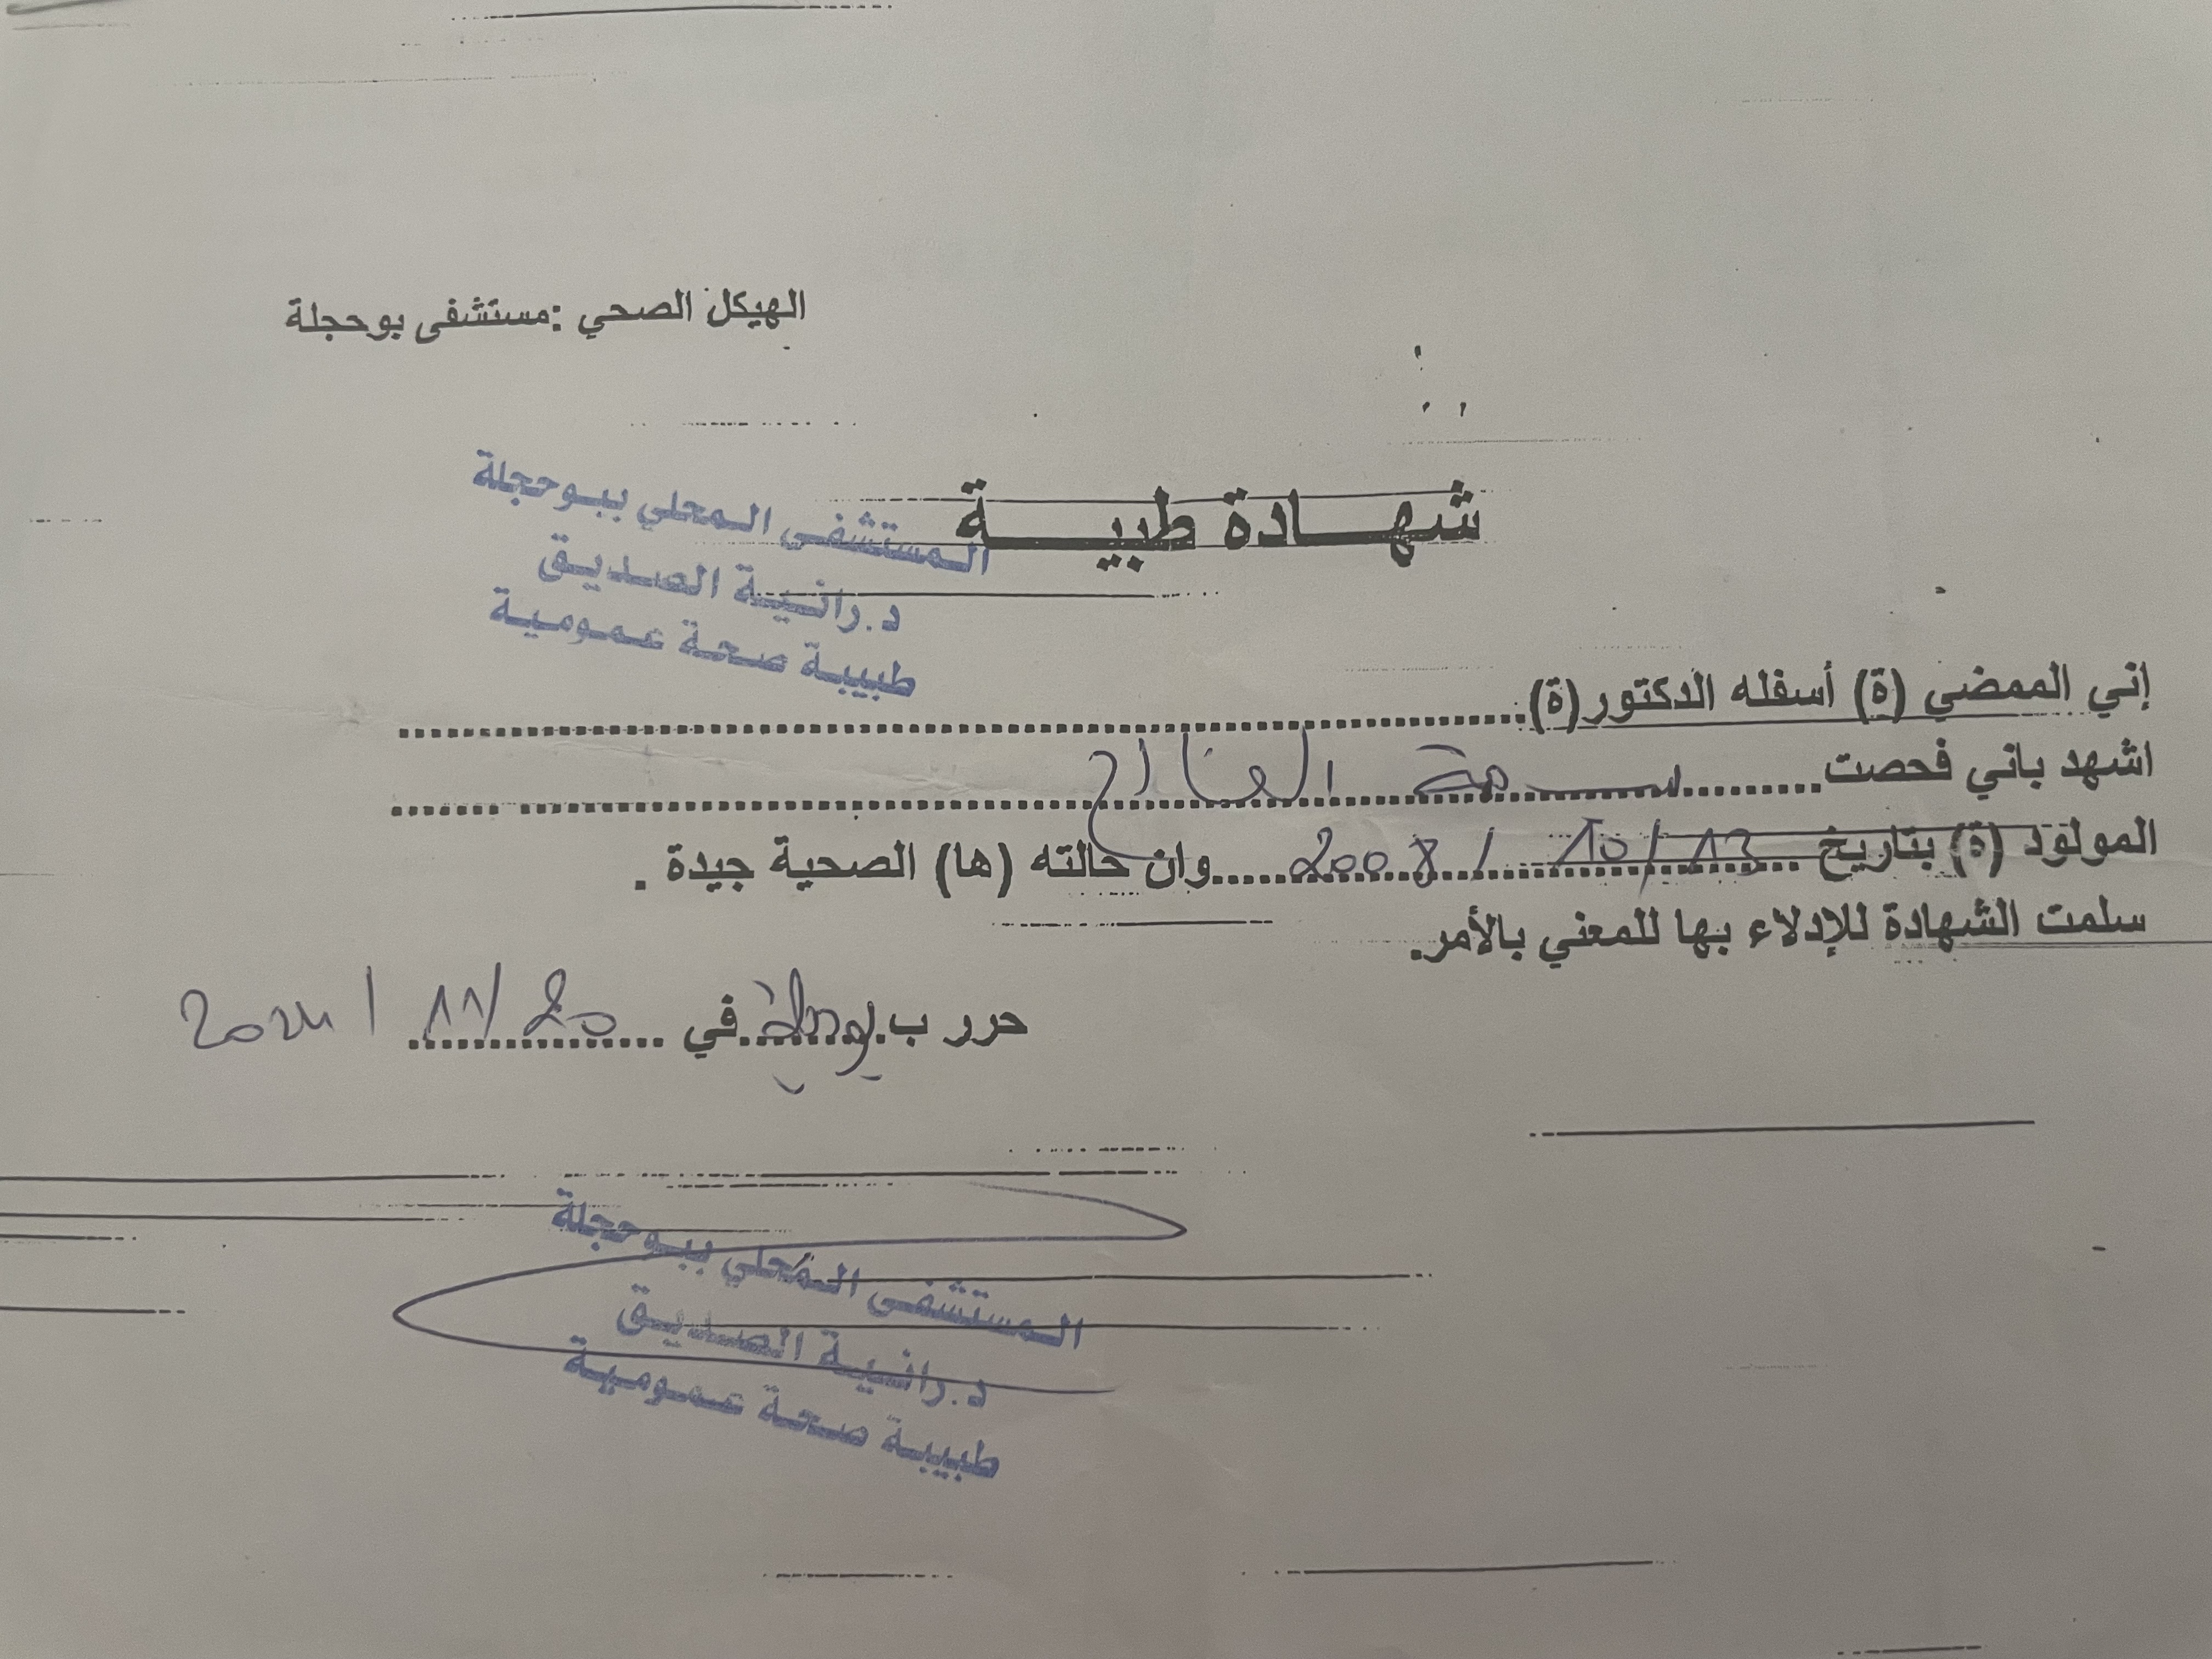 الهيكل الصحي :مستشفى بوحجلة
شهـــادة طبيـــة
المستشفى المحلي ببوحجلة
د.رانية الصديق
طبيبة صحة عمومية
إني الممضي (ة) أسفله الدكتور(ة)
اشهد باني فحصت
المولود (ة) بتاريخ 13/ 10 / 2008 وان حالته (ها) الصحية جيدة .
سلمت الشهادة للإدلاء بها للمعني بالأمر.
حرر ب بوحجلة في 20 /11 / 2024
المستشفى المحلي ببوحجلة
د.رانية الصديق
طبيبة صحة عمومية